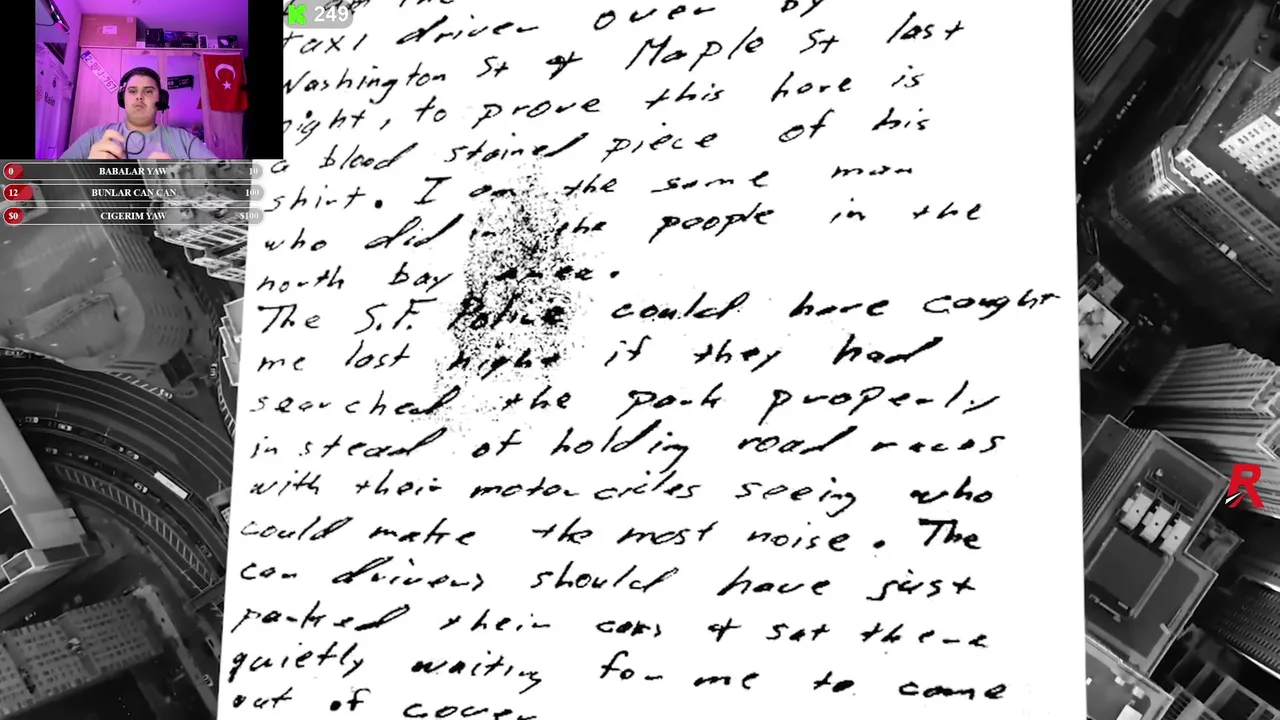 249
0 BABALAR YAW 10
12 BUNLAR CAN CAN 100
$0 CIGERIM YAW $100
taxi driver over by
Washington St & Maple St last
night, to prove this here is
a blood stained piece of his
shirt. I am the same man
who did in the people in the
north bay area.
The S.F. Police could have caught
me last night if they had
searched the park properly
instead of holding road races
with their motorcicles seeing who
could make the most noise. The
car drivers should have just
parked their cars & sat there
quietly waiting for me to come
out of cover